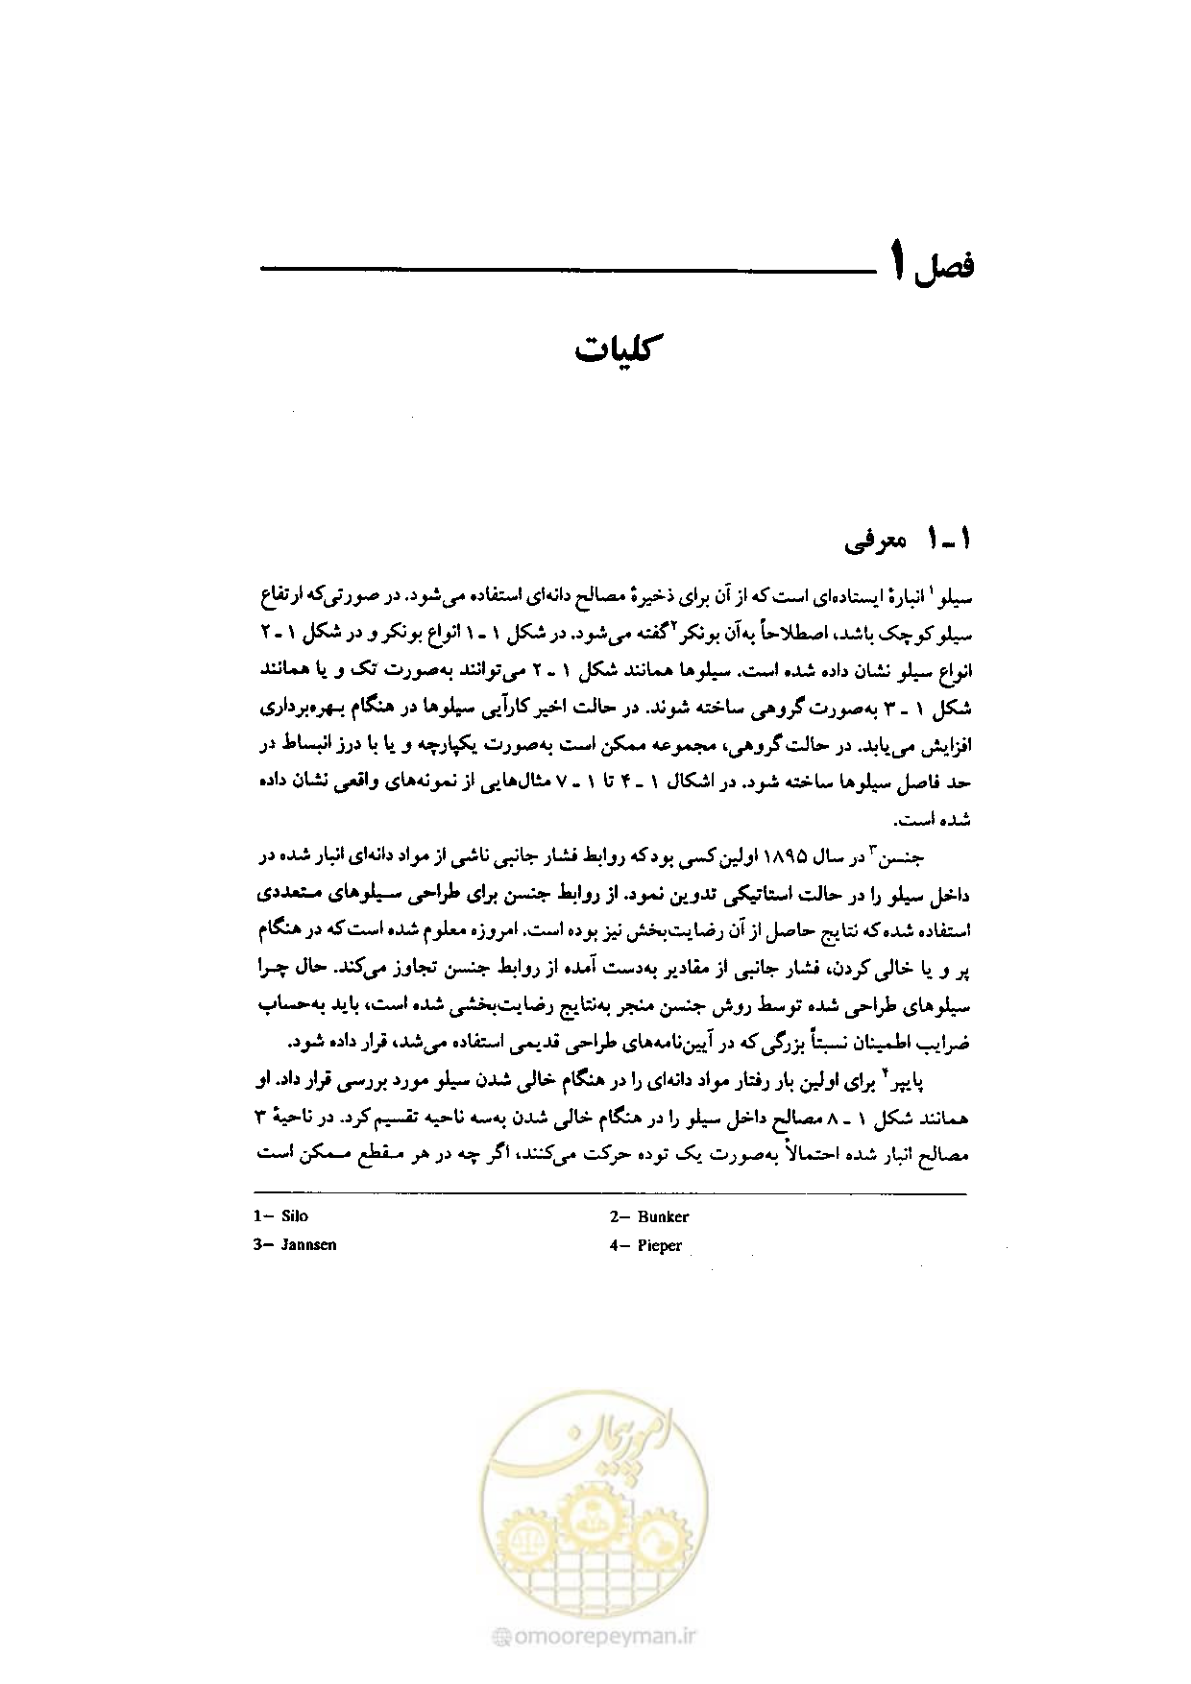 فصل ۱
کلیات
۱-۱ معرفی
سیلو۱ انبارهٔ ایستاده‌ای است که از آن برای ذخیرهٔ مصالح دانه‌ای استفاده می‌شود. در صورتی‌که ارتفاع
سیلو کوچک باشد، اصطلاحاً به‌آن بونکر۲ گفته می‌شود. در شکل ۱ - ۱ انواع بونکر و در شکل ۱ - ۲
انواع سیلو نشان داده شده است. سیلوها همانند شکل ۱ - ۲ می‌توانند به‌صورت تک و یا همانند
شکل ۱ - ۳ به‌صورت گروهی ساخته شوند. در حالت اخیر کارآیی سیلوها در هنگام بهره‌برداری
افزایش می‌یابد. در حالت گروهی، مجموعه ممکن است به‌صورت یکپارچه و یا با درز انبساط در
حد فاصل سیلوها ساخته شود. در اشکال ۱ - ۴ تا ۱ - ۷ مثال‌هایی از نمونه‌های واقعی نشان داده
شده است.
جنسن۳ در سال ۱۸۹۵ اولین کسی بود که روابط فشار جانبی ناشی از مواد دانه‌ای انبار شده در
داخل سیلو را در حالت استاتیکی تدوین نمود. از روابط جنسن برای طراحی سیلوهای متعددی
استفاده شده که نتایج حاصل از آن رضایت‌بخش نیز بوده است. امروزه معلوم شده است که در هنگام
پر و یا خالی کردن، فشار جانبی از مقادیر به‌دست آمده از روابط جنسن تجاوز می‌کند. حال چرا
سیلوهای طراحی شده توسط روش جنسن منجر به‌نتایج رضایت‌بخشی شده است، باید به‌حساب
ضرایب اطمینان نسبتاً بزرگی که در آیین‌نامه‌های طراحی قدیمی استفاده می‌شد، قرار داده شود.
پایپر۴ برای اولین بار رفتار مواد دانه‌ای را در هنگام خالی شدن سیلو مورد بررسی قرار داد. او
همانند شکل ۱ - ۸ مصالح داخل سیلو را در هنگام خالی شدن به‌سه ناحیه تقسیم کرد. در ناحیهٔ ۳
مصالح انبار شده احتمالاً به‌صورت یک توده حرکت می‌کنند، اگر چه در هر مقطع ممکن است
1- Silo 2- Bunker
3- Jannsen 4- Pieper
امور پیمان
@omoorepeyman.ir